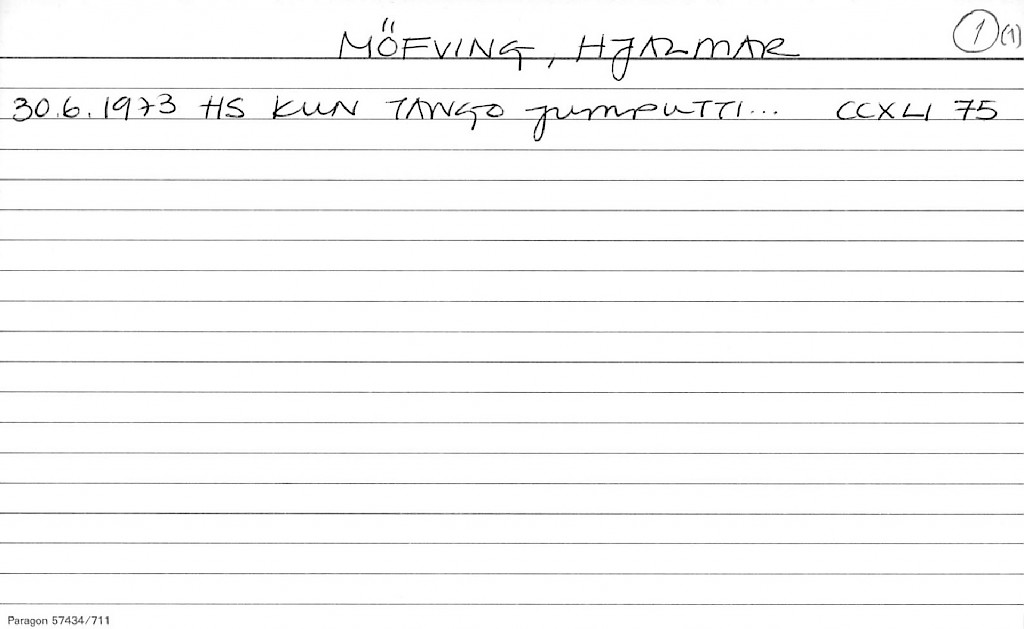 MÖFVING, HJALMAR
1 (1)
30.6.1973 HS KUN TANGO JUMPUTTI... CCXLI 75
Paragon 57434/711